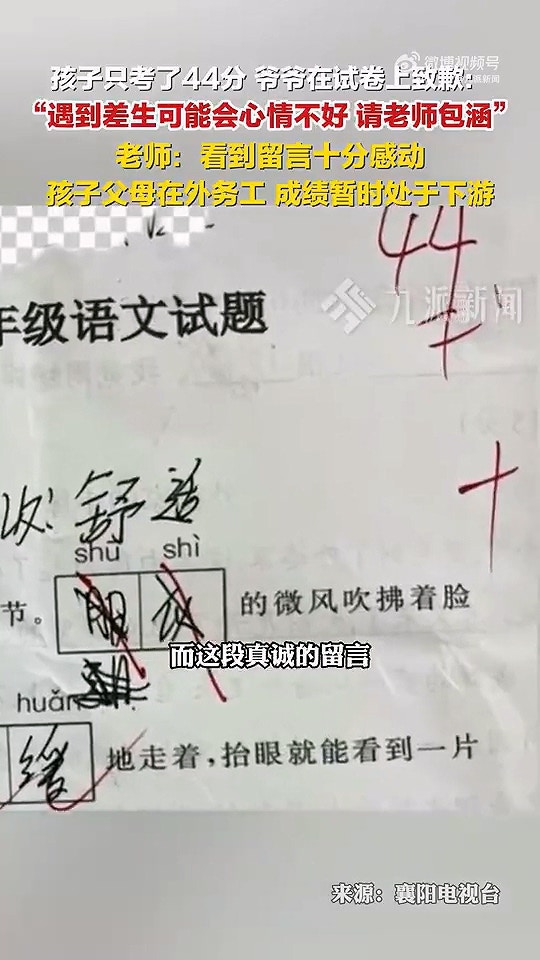 微博视频号
孩子只考了44分 爷爷在试卷上致歉:
“遇到差生可能会心情不好 请老师包涵”
老师：看到留言十分感动
孩子父母在外务工 成绩暂时处于下游
44
九派新闻
年级语文试题
改: 舒适
shū shì
节。 的微风吹拂着脸
而这段真诚的留言
huǎn
缓 地走着,抬眼就能看到一片
来源：襄阳电视台